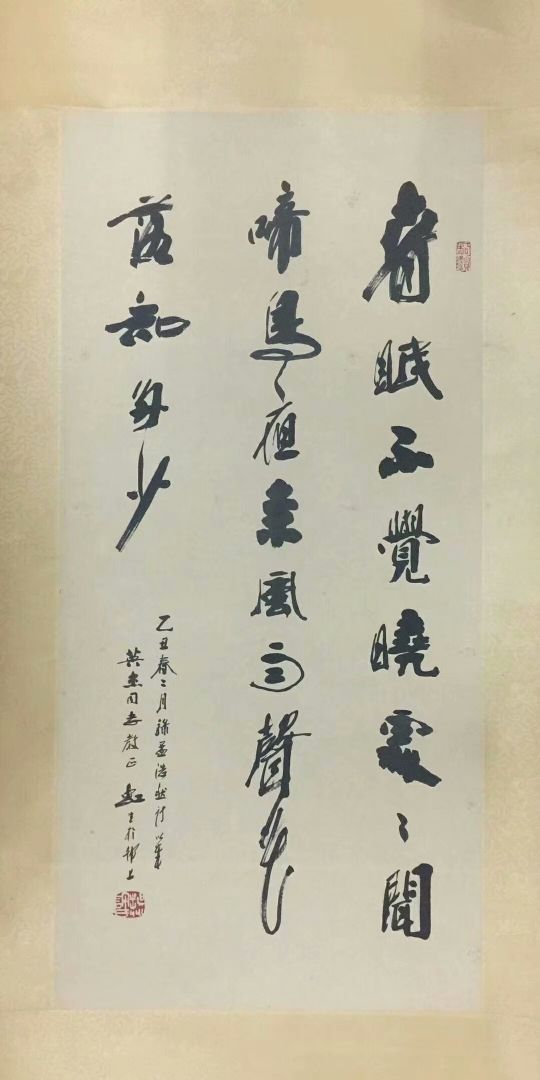 春眠不覺曉處〻聞
啼鳥夜來風雨聲花
落知多少
乙丑春二月錄孟浩然詩以奉
同志教正